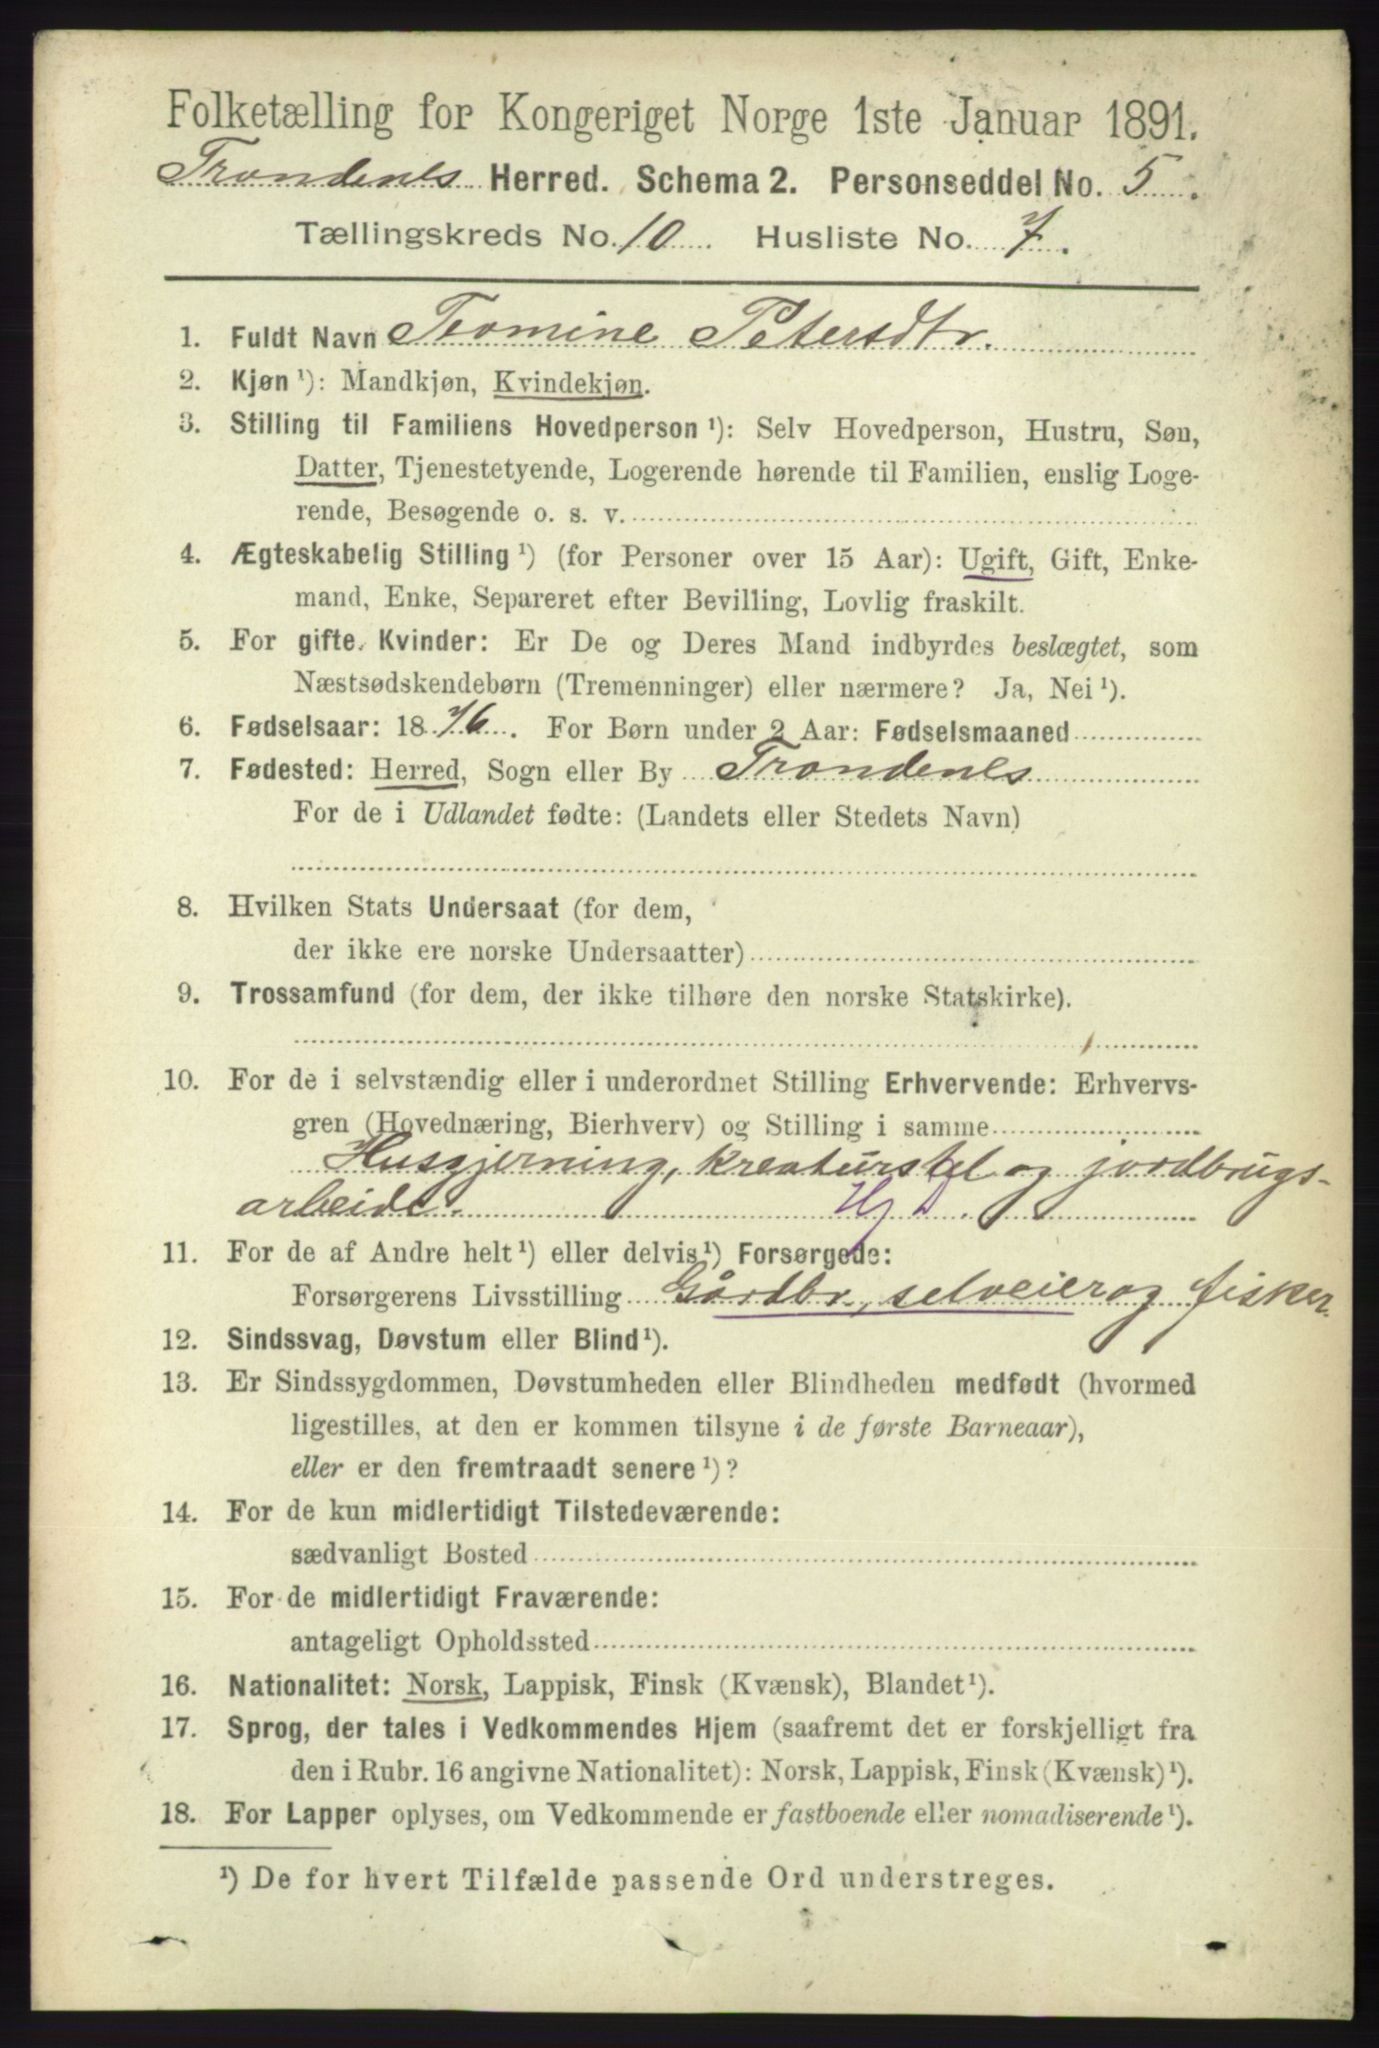 Folketælling for Kongeriget Norge 1ste Januar 1891.
Trondenes Herred. Schema 2. Personseddel No. 5.
Tællingskreds No. 10. Husliste No. 7.
1. Fuldt Navn Tomine Petersdtr.
2. Kjøn ¹): Mandkjøn, Kvindekjøn.
3. Stilling til Familiens Hovedperson ¹): Selv Hovedperson, Hustru, Søn,
Datter, Tjenestetyende, Logerende hørende til Familien, enslig Loge-
rende, Besøgende o. s. v.
4. Ægteskabelig Stilling ¹) (for Personer over 15 Aar): Ugift, Gift, Enke-
mand, Enke, Separeret efter Bevilling, Lovlig fraskilt.
5. For gifte Kvinder: Er De og Deres Mand indbyrdes beslægtet, som
Næstsødskendebørn (Tremenninger) eller nærmere? Ja, Nei ¹).
6. Fødselsaar: 1876. For Børn under 2 Aar: Fødselsmaaned
7. Fødested: Herred, Sogn eller By Trondenes
For de i Udlandet fødte: (Landets eller Stedets Navn)
8. Hvilken Stats Undersaat (for dem,
der ikke ere norske Undersaatter)
9. Trossamfund (for dem, der ikke tilhøre den norske Statskirke).
10. For de i selvstændig eller i underordnet Stilling Erhvervende: Erhvervs-
gren (Hovednæring, Bierhverv) og Stilling i samme
Husgjerning, kreaturstel og jordbrugs-
arbeide. Hj D.
11. For de af Andre helt ¹) eller delvis ¹) Forsørgede:
Forsørgerens Livsstilling Gårdbr., selveier og fisker.
12. Sindssvag, Døvstum eller Blind ¹).
13. Er Sindssygdommen, Døvstumheden eller Blindheden medfødt (hvormed
ligestilles, at den er kommen tilsyne i de første Barneaar),
eller er den fremtraadt senere ¹)?
14. For de kun midlertidigt Tilstedeværende:
sædvanligt Bosted
15. For de midlertidigt Fraværende:
antageligt Opholdssted
16. Nationalitet: Norsk, Lappisk, Finsk (Kvænsk), Blandet ¹).
17. Sprog, der tales i Vedkommendes Hjem (saafremt det er forskjelligt fra
den i Rubr. 16 angivne Nationalitet): Norsk, Lappisk, Finsk (Kvænsk) ¹).
18. For Lapper oplyses, om Vedkommende er fastboende eller nomadiserende ¹).
¹) De for hvert Tilfælde passende Ord understreges.